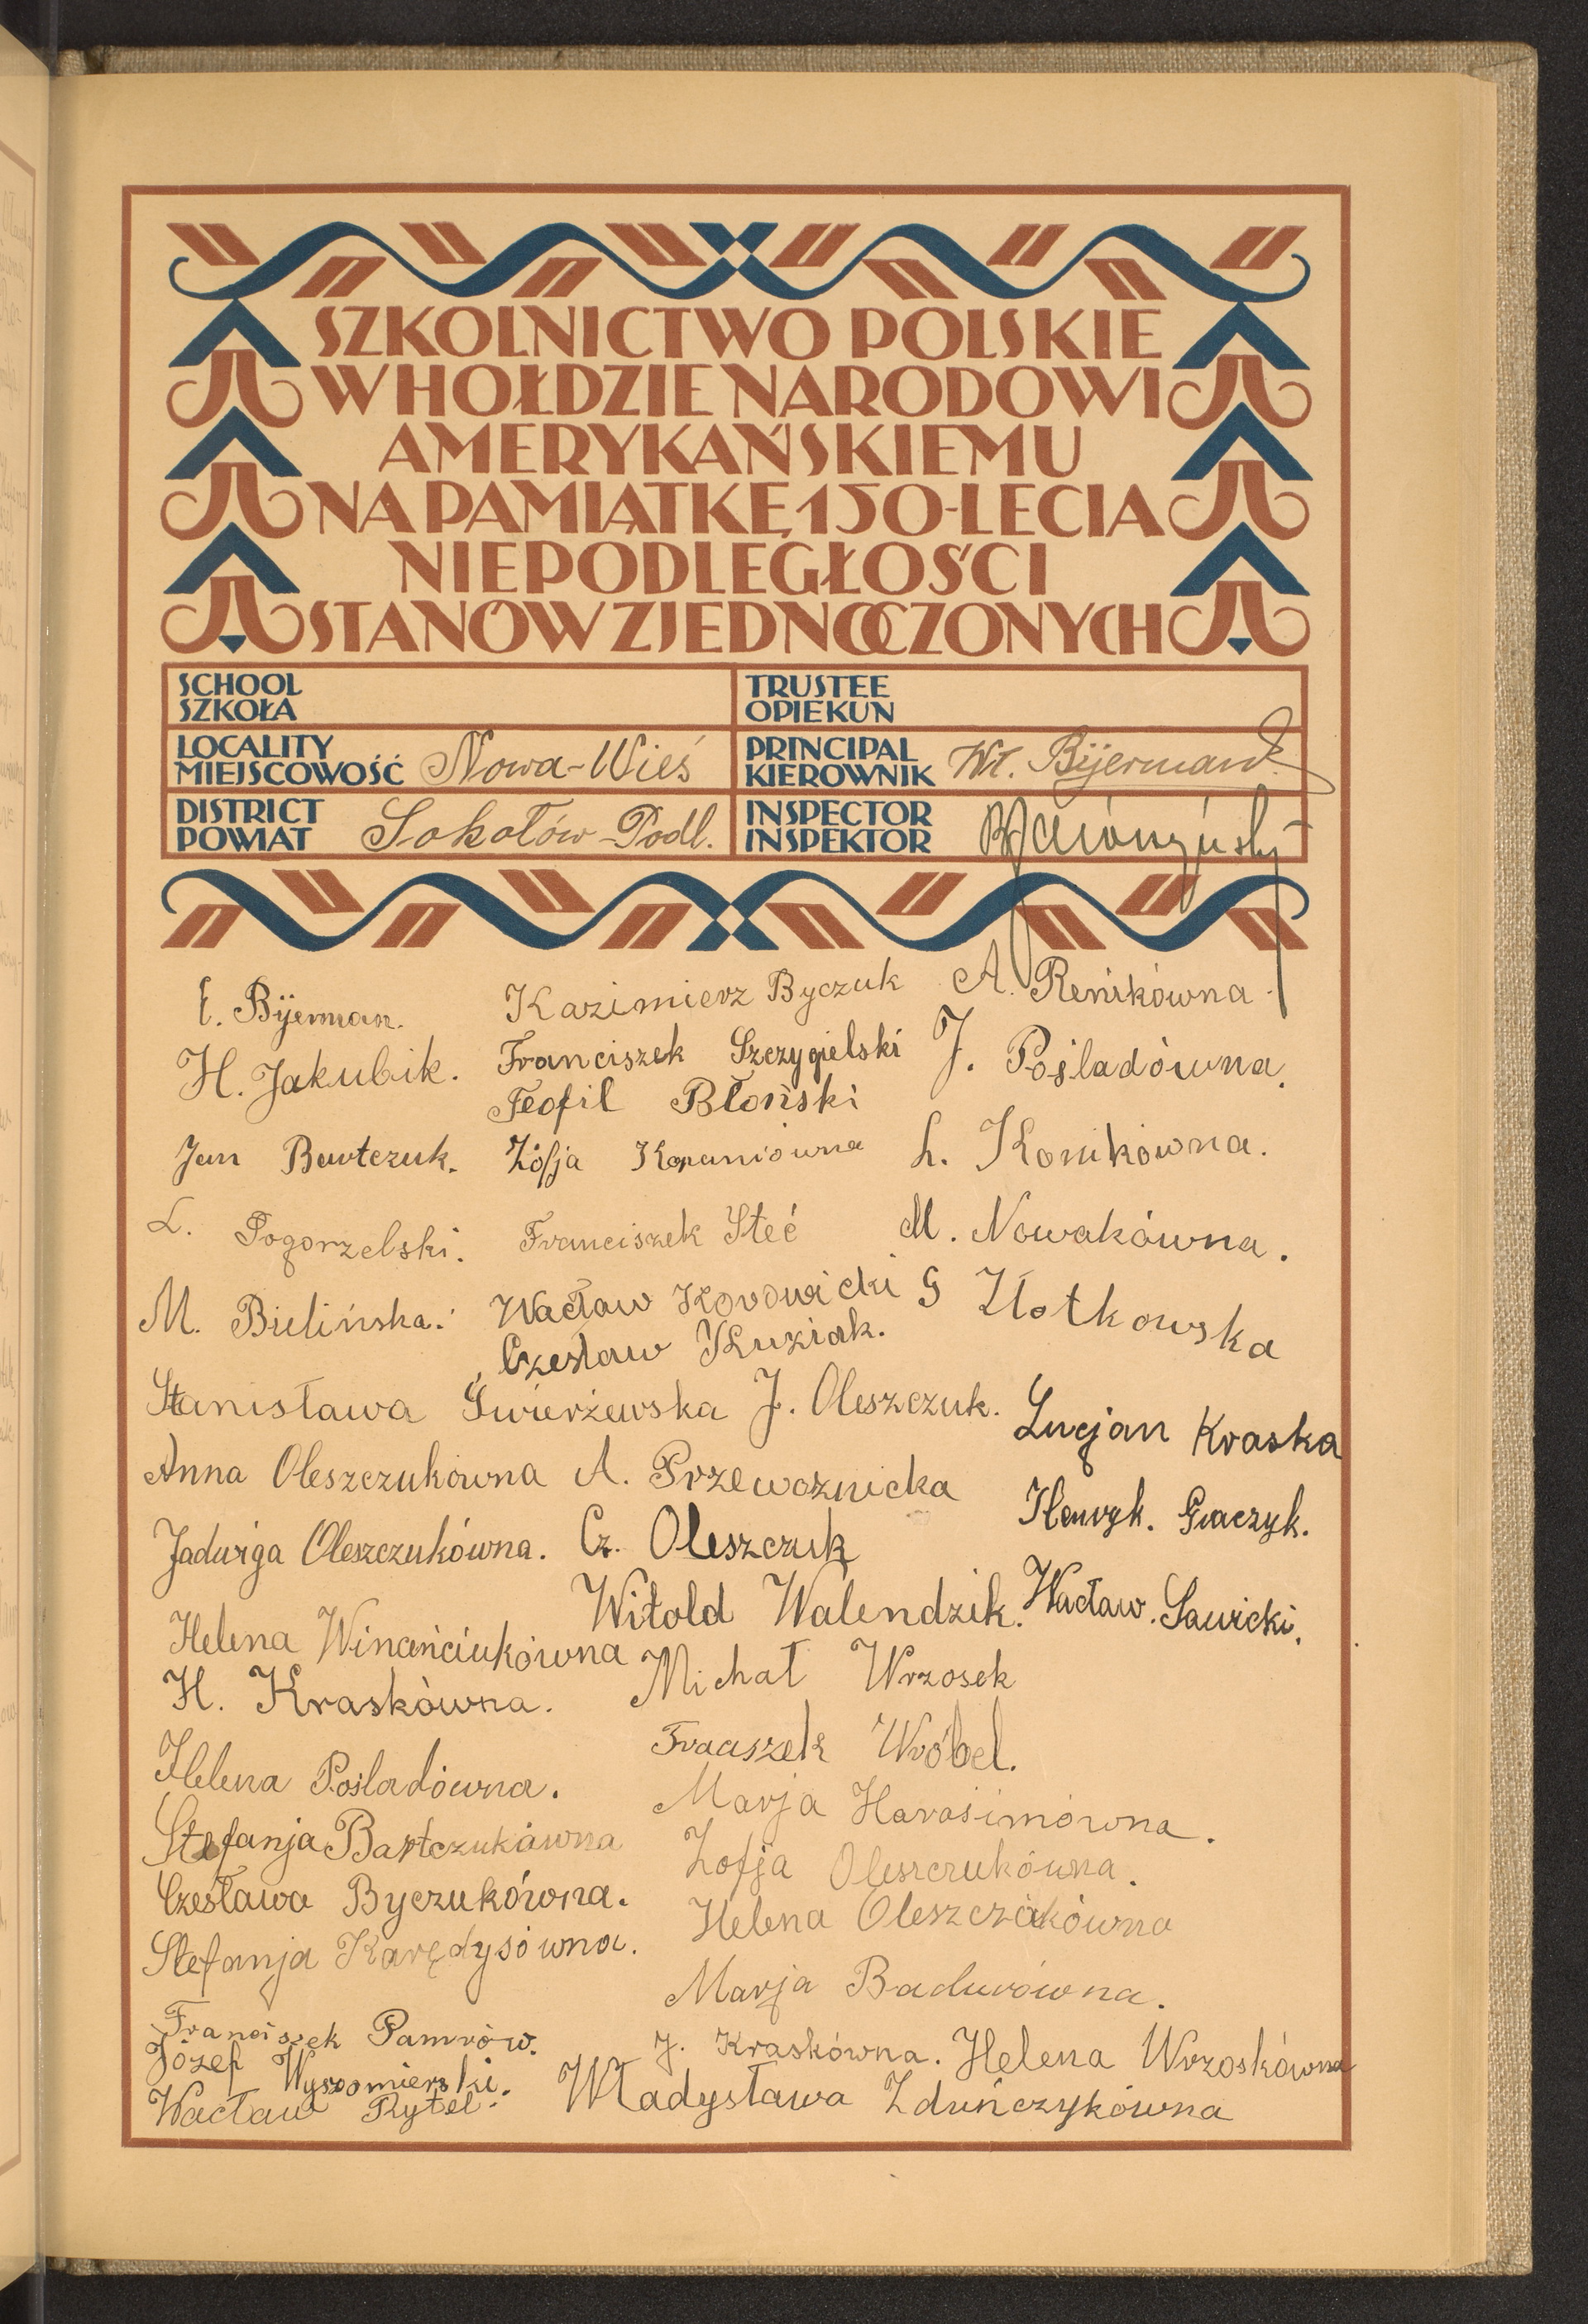 SZKOLNICTWO POLSKIE
W HOŁDZIE NARODOWI
AMERYKAŃSKIEMU
NA PAMIĄTKĘ 150-LECIA
NIEPODLEGŁOŚCI
STANÓW ZJEDNOCZONYCH
SCHOOL
SZKOŁA
TRUSTEE
OPIEKUN
LOCALITY
MIEJSCOWOŚĆ Nowa-Wieś
PRINCIPAL
KIEROWNIK Wł. Bijerman
DISTRICT
POWIAT Sokołów-Podl.
INSPECTOR
INSPEKTOR
E. Bijerman.
Kazimierz Byczuk
A. Renikówna.
H. Jakubik.
Franciszek Szczygielski
J. Pośladówna.
Teofil Błoński
Jan Bartczuk.
Zófja Karaniówna
L. Konikówna.
L. Pogorzelski.
Franciszek Steć
M. Nowakówna.
M. Bielińska.
Wacław Korowicki
G Złotkowska
Czesław Kuziak.
Stanisława Świerżewska
J. Oleszczuk.
Lucjan Kraska
Anna Oleszczukówna
A. Przewoźnicka
Henryk. Graczyk.
Jadwiga Oleszczukówna.
Cz. Oleszczuk
Witold Walendzik.
Wacław. Sawicki.
Helena Winańciukówna
Michał Wrzosek
H. Kraskówna.
Fraaszek Wróbel.
Helena Pośladówna.
Marja Harasimówna.
Stefanja Bartczukówna
Zofja Oleszczukówna.
Czesława Byczukówna.
Helena Oleszczakówna
Stefanja Karędysówna.
Marja Badurówna.
Franciszek Pamrów.
J. Kraskówna.
Helena Wrzoskówna
Józef Wyszomierski.
Wacław Rytel.
Władysława Zduńczykówna